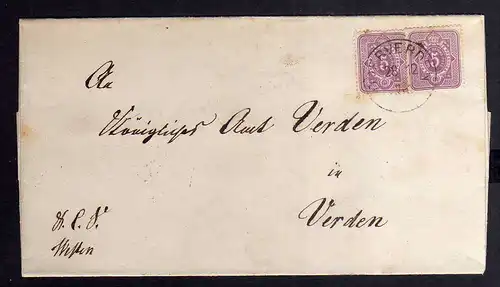 5 5
26 12
An
Königliches Amt Verden
in
Verden
Westen